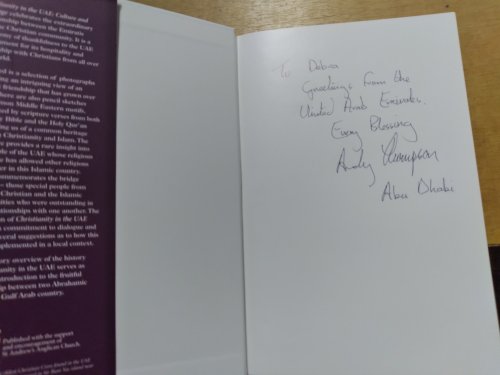 ianity in the UAE: Culture and
ge celebrates the extraordinary
nship between the Emiratic
e Christian community. It is a
ony of thankfulness to the UAE
ment for its hospitality and
ship with Christians from all over
rld.
ed is a selection of photographs
ng an intriguing view of an
friendship that has grown over
here are also pencil sketches
mon Middle Eastern motifs,
ed by scripture verses from both
y Bible and the Holy Qur'an
ng us of a common heritage
Christianity and Islam. The
e provides a rare insight into
ple of the UAE whose religious
e has allowed other religions
er in this Islamic country.
ommemorates the bridge
– those special people from
Christian and the Islamic
ities who were outstanding in
tionships with one another. The
on of Christianity in the UAE
commitment to dialogue and
everal suggestions as to how this
mplemented in a local context.
ory overview of the history
ianity in the UAE serves as
ntroduction to the fruitful
hip between two Abrahamic
Gulf Arab country.
Published with the support
and encouragement of
St Andrew's Anglican Church.
Christian Cross found in the UAE
To Debra
Greetings from the
United Arab Emirates.
Every Blessing
Andy Thompson
Abu Dhabi